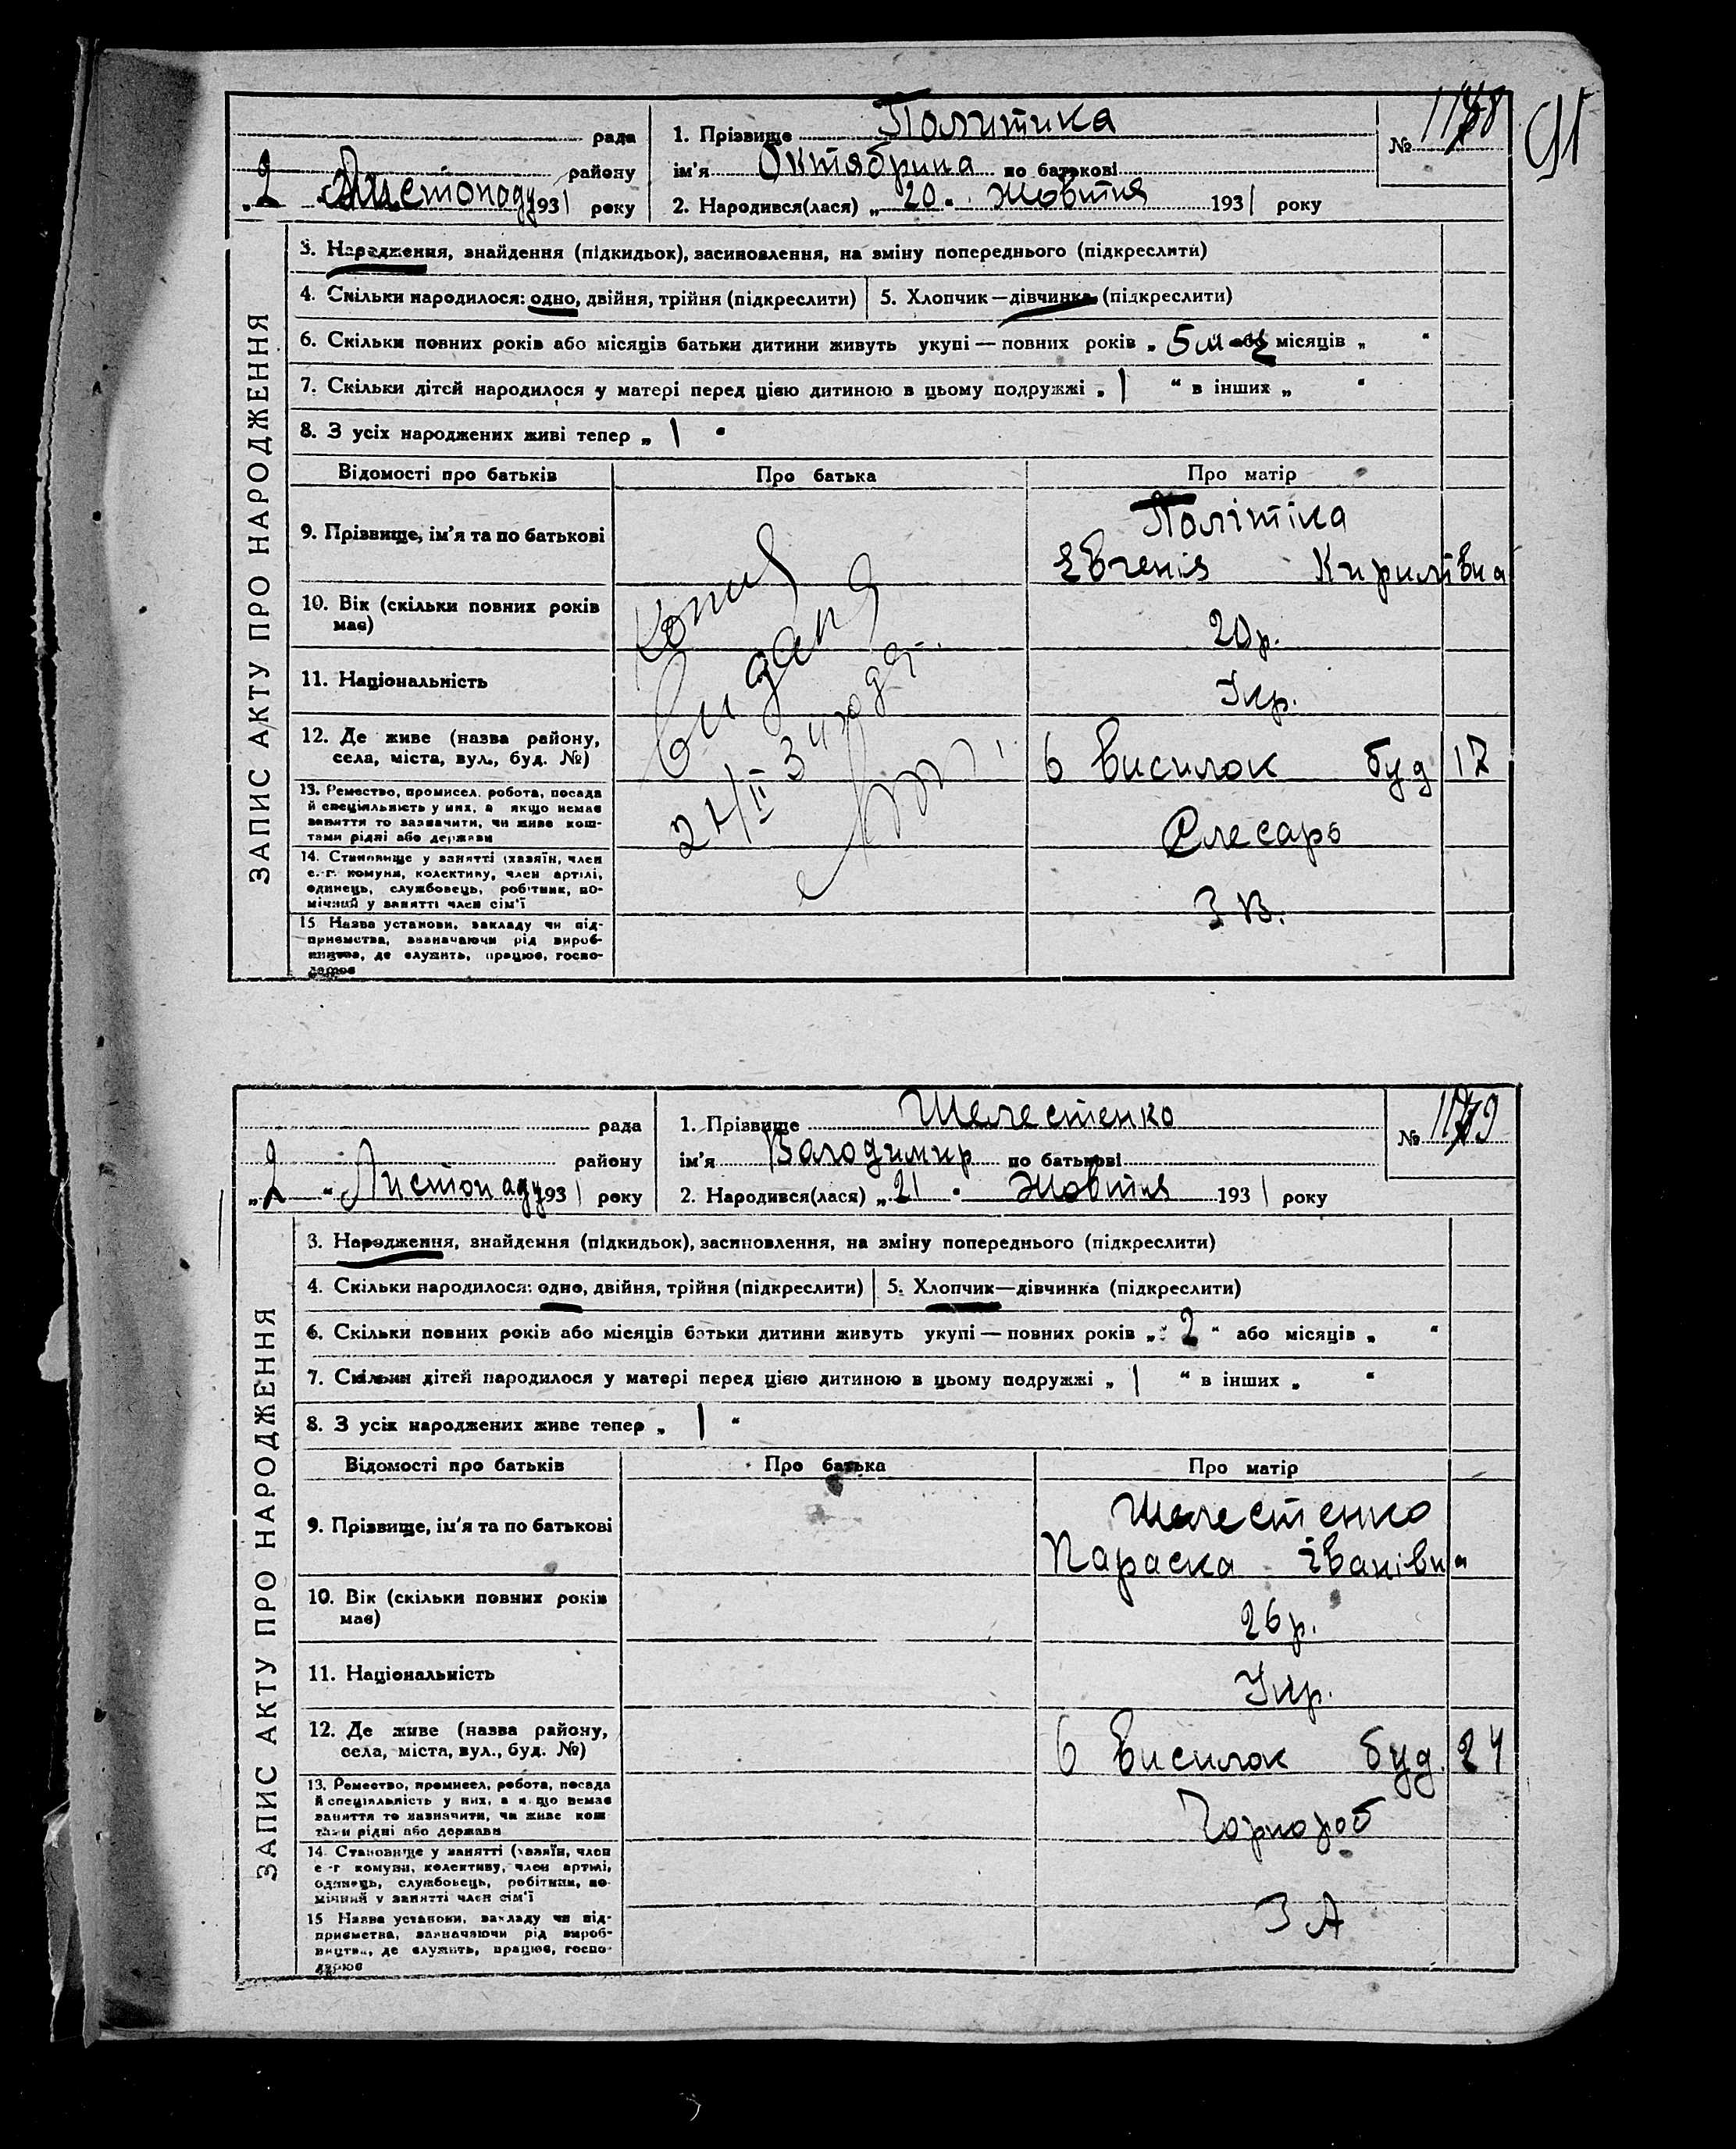 91
рада
1. Прізвище Политика
№
району
ім'я Октябрина по батькові
„2 Листопаду 1931 року
2. Народився(лася) „20 Жовтня 1931 року
ЗАПИС АКТУ ПРО НАРОДЖЕННЯ
3. Народження, знайдення (підкидьок), засиновлення, на зміну попереднього (підкреслити)
4. Скільки народилося: одно, двійня, трійня (підкреслити) 5. Хлопчик—дівчинка (підкреслити)
6. Скільки повних років або місяців батьки дитини живуть укупі — повних років „ 5 м-ц місяців „ “
7. Скільки дітей народилося у матері перед цією дитиною в цьому подружжі „ 1 “ в інших „ “
8. З усіх народжених живі тепер „ 1 "
Відомості про батьків Про батька Про матір
9. Прізвище, ім'я та по батькові
Політіка
Євгенія Кирилівна
10. Вік (скільки повних років
має)
20р.
11. Національність
Укр.
12. Де живе (назва району,
села, міста, вул., буд. №)
6 висилок буд 17
13. Ремество, промисел, робота, посада
й спеціяльність у них, а якщо немає
заняття то зазначити, чи живе кош-
тами рідні або держави
Слесарь
14. Становище у занятті (хазяїн, член
с.-г. комуни, колективу, член артілі,
одинець, службовець, робітник, по-
мічний у занятті член сім'ї
З В.
15 Назва установи, закладу чи під-
приємства, зазначаючи рід вироб-
ництва, де служить, працює, госпо-
дарює
копия
видана
34 года
рада
1. Прізвище Шелестенко
№
району
ім'я Володимир по батькові
„2 “ Листопаду 1931 року
2. Народився(лася) „21 " Жовтня 1931 року
ЗАПИС АКТУ ПРО НАРОДЖЕННЯ
3. Народження, знайдення (підкидьок), засиновлення, на зміну попереднього (підкреслити)
4. Скільки народилося: одно, двійня, трійня (підкреслити) 5. Хлопчик—дівчинка (підкреслити)
6. Скільки повних років або місяців батьки дитини живуть укупі — повних років „ 2 “ або місяців „ “
7. Скільки дітей народилося у матері перед цією дитиною в цьому подружжі „ 1 “ в інших „ “
8. З усіх народжених живе тепер „ 1 “
Відомості про батьків Про батька Про матір
9. Прізвище, ім'я та по батькові
Шелестенко
Параска Іванівна
10. Вік (скільки повних років
має)
26р.
11. Національність
Укр.
12. Де живе (назва району,
села, міста, вул., буд. №)
6 висилок буд. 24
13. Ремество, промисел, робота, посада
й спеціяльність у них, а якщо немає
заняття то зазначити, чи живе кош
тами рідні або держави
Чорнороб
14. Становище у занятті (хазяїн, член
с-г комуни, колективу, член артілі,
одинець, службовець, робітник, по-
мічний у занятті член сім'ї
З А
15 Назва установи, закладу чи під-
приємства, зазначаючи рід вироб-
ництва, де служить, працює, госпо-
дарює